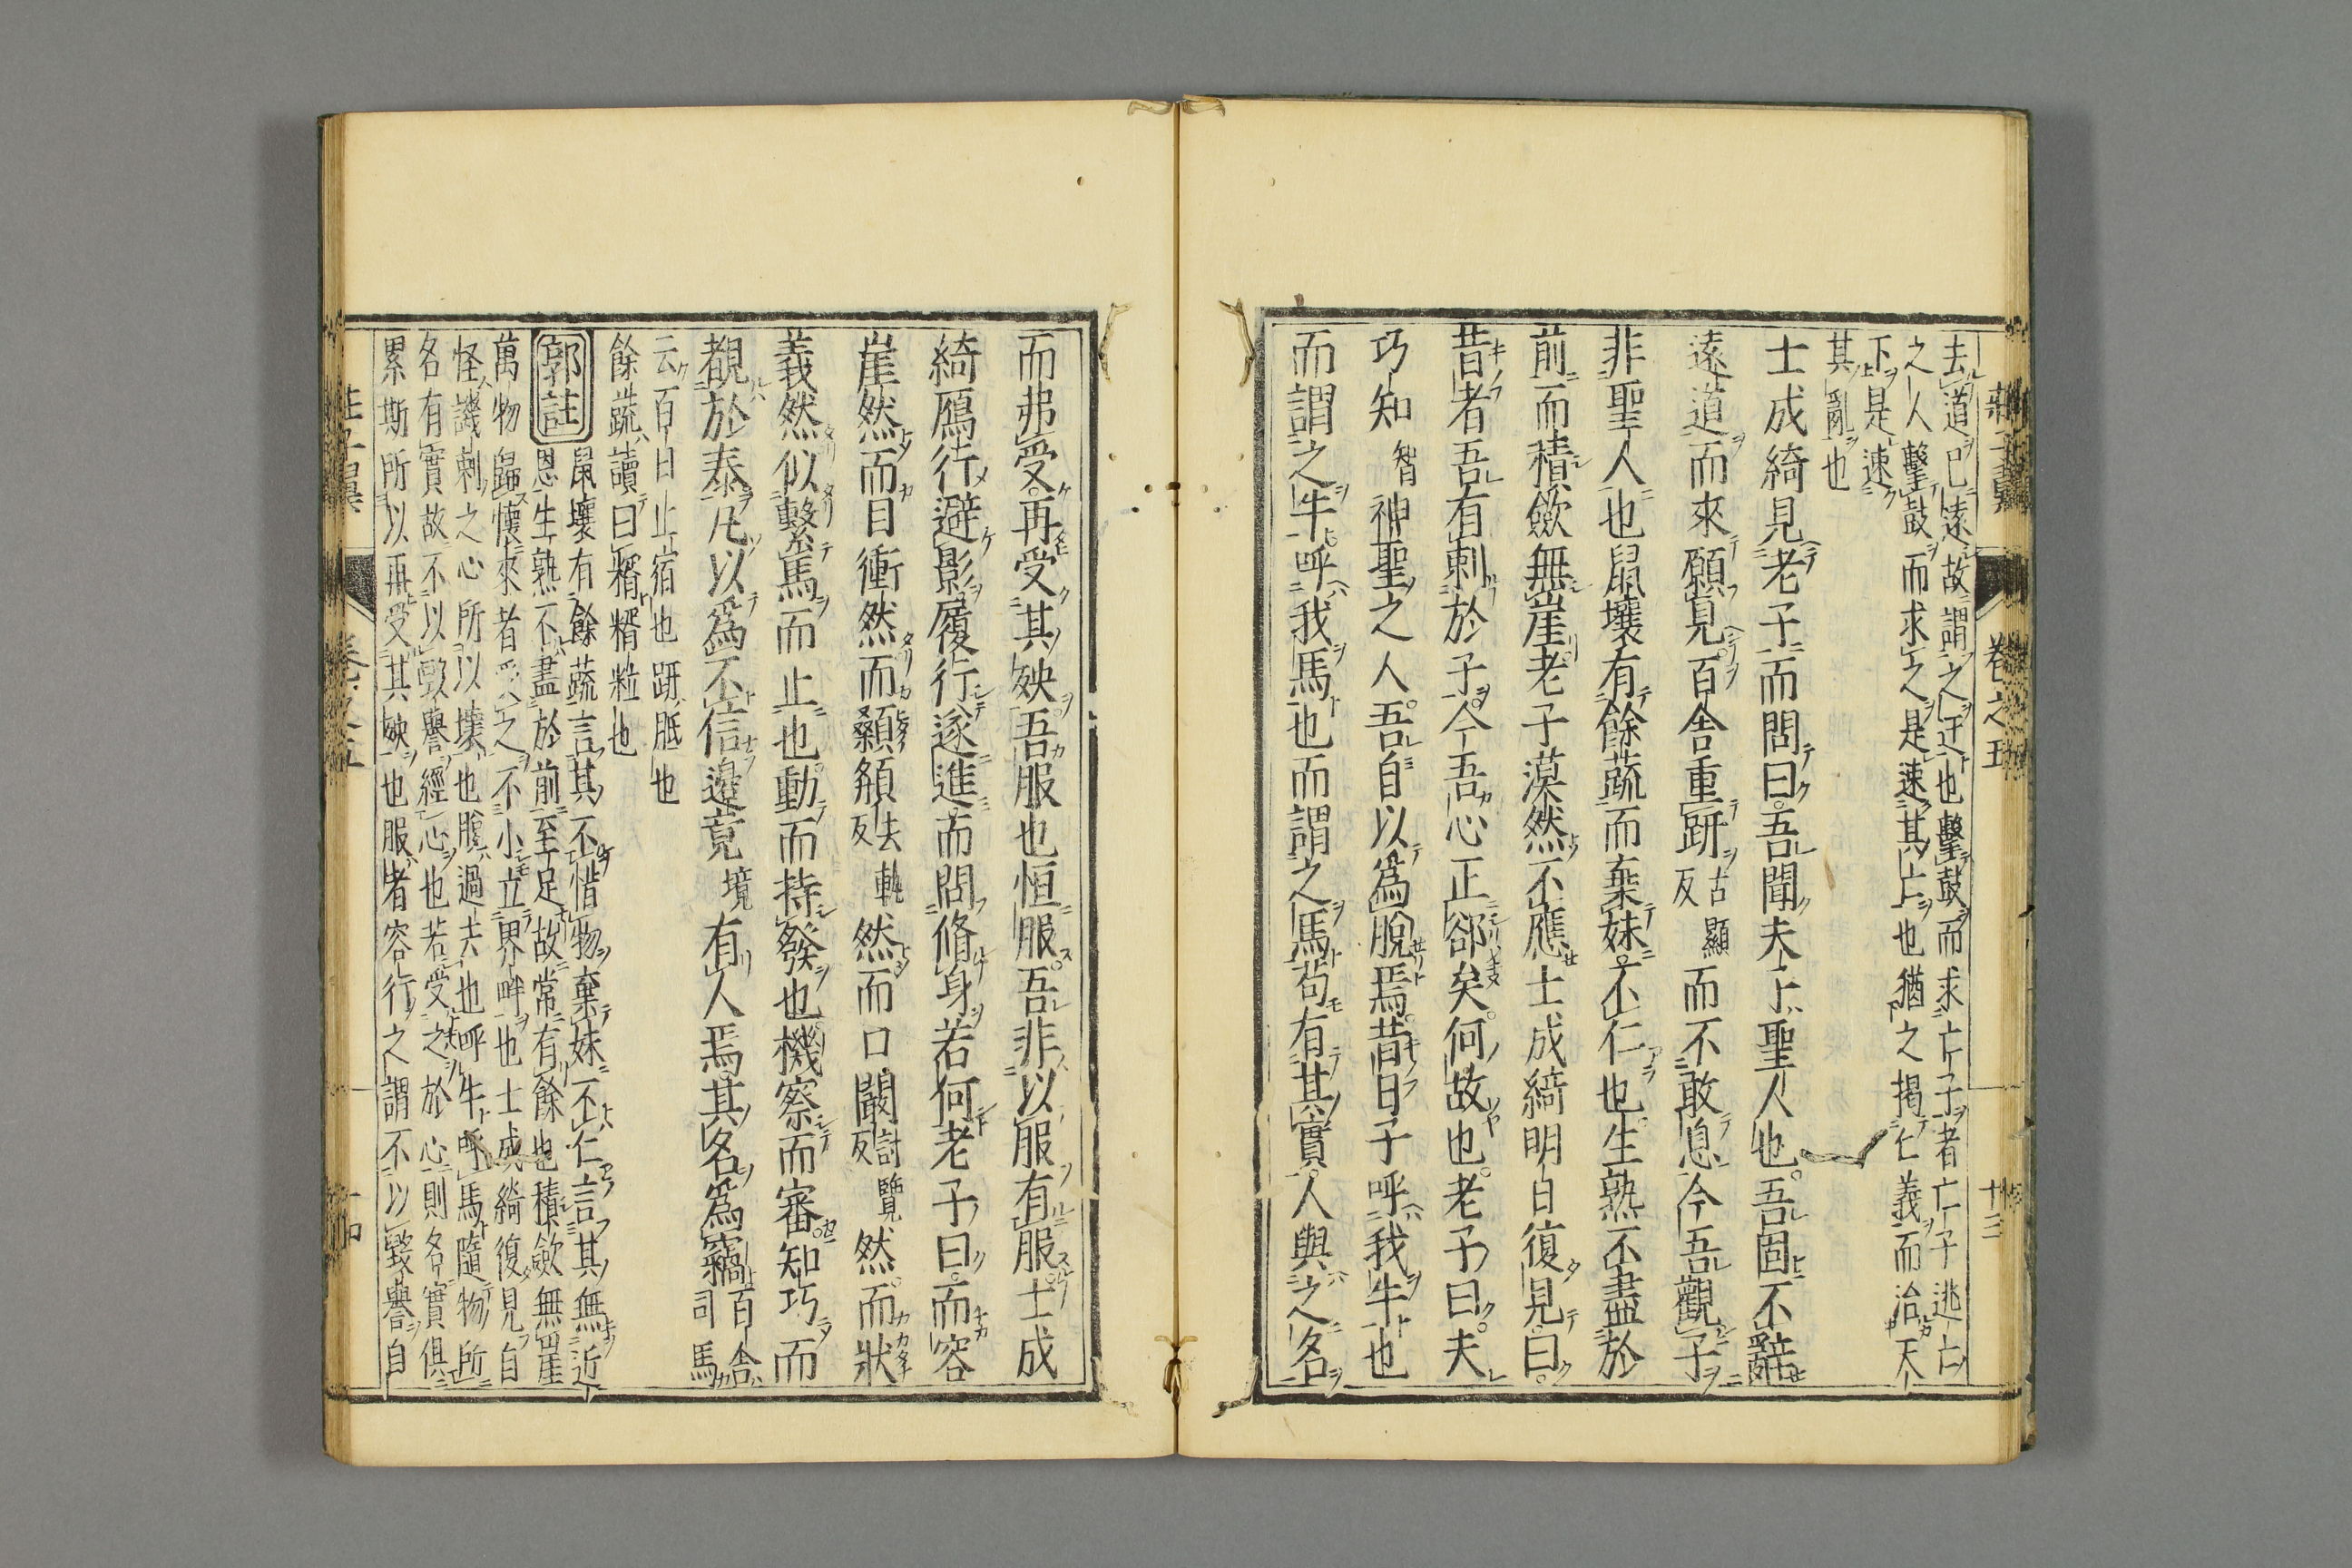 莊子翼 卷之五 十三
去道已遠故謂之迂也擊鼓而求亡子者亡子逃亡
之人擊鼓而求之是速其亡也猶之揭仁義而治天
下是速
其亂也
士成綺見老子而問曰吾聞夫子聖人也吾固不辭
遠道而來願見百舍重趼古顯反而不敢息今吾觀子
非聖人也鼠壤有餘蔬而棄妹不仁也生熟不盡於
前而積斂無崖老子漠然不應士成綺明日復見曰
昔者吾有刺於子今吾心正郤矣何故也老子曰夫
巧知智神聖之人吾自以為脫焉昔日子呼我牛也
而謂之牛呼我馬也而謂之馬苟有其實人與之名
而弗受再受其殃吾服也恒服吾非以服有服士成
綺鴈行避影履行遂進而問脩身若何老子曰而容
崖然而目衝然而顙頯去軌反然而口闞討覽反然而狀
義然似繫馬而止也動而持發也機察而審知巧而
覩於泰凡以為不信邊竟境有人焉其名為竊百舍司馬
云百日止宿也趼胝也
餘蔬讀曰糈糈粒也
郭註
鼠壤有餘蔬言其不惜物棄妹不仁言其無近
恩生熟不盡於前至足故常有餘也積斂無崖
萬物歸懷來者受之不小立界畔也士成綺復見自
怪譏刺之心所以壞也脫過去也呼牛呼馬隨物所
名有實故不以毀譽經心也若受之於心則名實俱
累斯所以再受其殃也服者容行之謂不以毀譽自
卷之五 十四